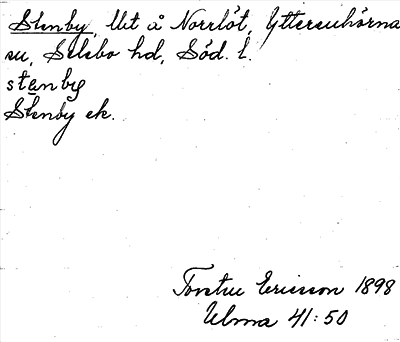 Stenby, Utt å Norrlöt, Ytterenhörna
sn, Selebo hd, Söd. l.
stenby
Stenby ek.
Torsten Ericsson 1898
Ulma 41:50